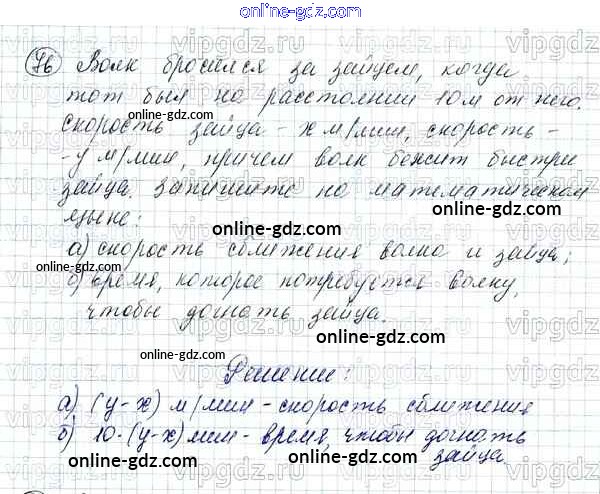 online-gdz.com
76 Волк бросился за зайцем, когда
тот был на расстоянии 10 м от него.
Скорость зайца - х м/мин, скорость -
- у м/мин, причем волк бежит быстрее
зайца. Запишите на математическом
языке:
online-gdz.com
online-gdz.com
а) скорость сближения волка и зайца;
online-gdz.com
б) время, которое потребуется волку,
чтобы догнать зайца.
online-gdz.com
online-gdz.com
Решение:
online-gdz.com
а) (у-х) м/мин - скорость сближения
б) 10·(у-х) мин - время, чтобы догнать
зайца.
online-gdz.com
online-gdz.com